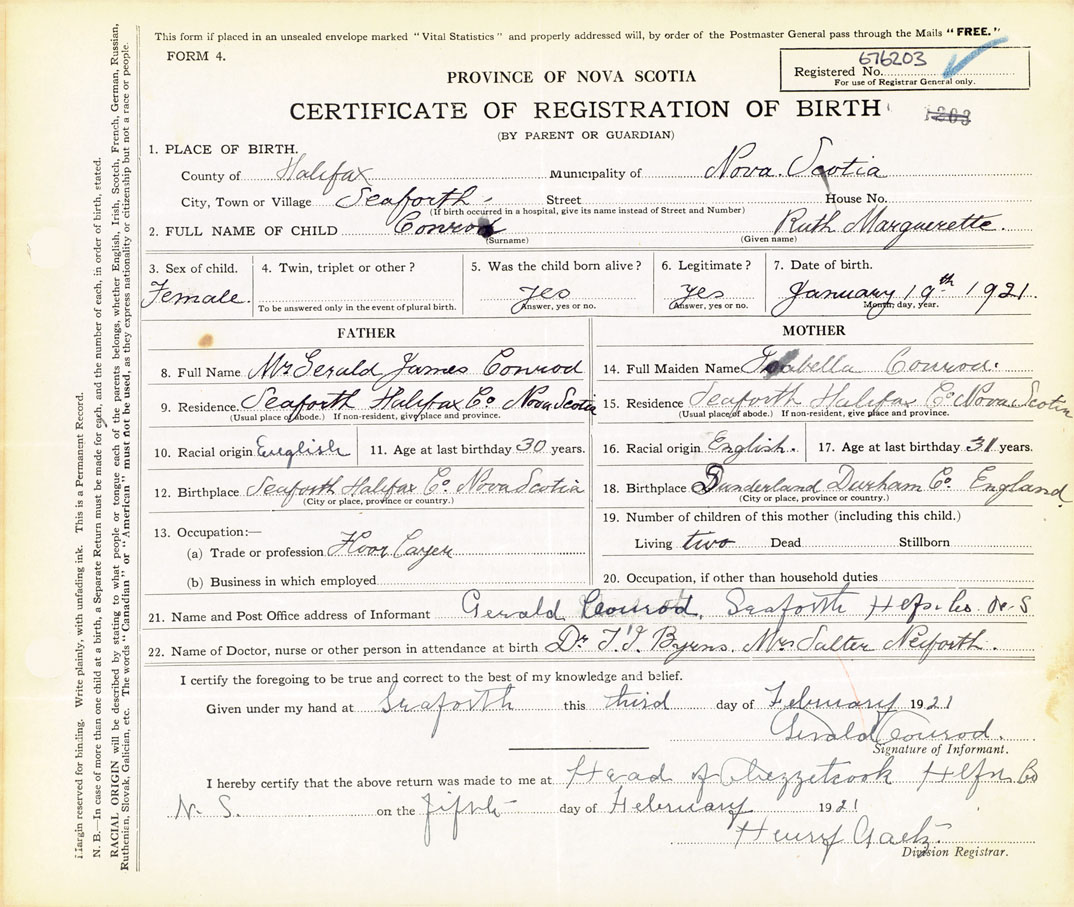 This form if placed in an unsealed envelope marked "Vital Statistics" and properly addressed will, by order of the Postmaster General pass through the Mails "FREE."
FORM 4.
676203
Registered No.
For use of Registrar General only.
PROVINCE OF NOVA SCOTIA
CERTIFICATE OF REGISTRATION OF BIRTH
(BY PARENT OR GUARDIAN)
1. PLACE OF BIRTH.
County of Halifax Municipality of Nova Scotia
City, Town or Village Seaforth - Street House No.
(If birth occurred in a hospital, give its name instead of Street and Number)
2. FULL NAME OF CHILD Conrod Ruth Marguerette.
(Surname) (Given name)
3. Sex of child. 4. Twin, triplet or other? 5. Was the child born alive? 6. Legitimate? 7. Date of birth.
Female. yes yes January 19th 1921.
To be answered only in the event of plural birth. Answer, yes or no. Answer, yes or no. Month, day, year.
FATHER
8. Full Name Mr Gerald James Conrod
9. Residence Seaforth Halifax Co Nova Scotia
(Usual place of abode.) If non-resident, give place and province.
10. Racial origin English 11. Age at last birthday 30 years.
12. Birthplace Seaforth Halifax Co Nova Scotia
(City or place, province or country.)
13. Occupation:—
(a) Trade or profession
(b) Business in which employed
MOTHER
14. Full Maiden Name Isabella Conrod.
15. Residence Seaforth Halifax Co Nova Scotia
(Usual place of abode.) If non-resident, give place and province.
16. Racial origin English. 17. Age at last birthday 31 years.
18. Birthplace Sunderland Durham Co. England
(City or place, province or country.)
19. Number of children of this mother (including this child.)
Living two Dead Stillborn
20. Occupation, if other than household duties
21. Name and Post Office address of Informant Gerald Conrod, Seaforth Hfx. Co. N-S
22. Name of Doctor, nurse or other person in attendance at birth Dr Byrns. Mrs Salter
I certify the foregoing to be true and correct to the best of my knowledge and belief.
Given under my hand at Seaforth this third day of February 1921
Gerald Conrod.
Signature of Informant.
I hereby certify that the above return was made to me at Head of Chezzetcook Hfx Co
N. S. on the fifth day of February 1921
Henry Gaetz
Division Registrar.
Margin reserved for binding. Write plainly, with unfading ink. This is a Permanent Record.
N. B.—In case of more than one child at a birth, a Separate Return must be made for each, and the number of each, in order of birth, stated.
RACIAL ORIGIN will be described by stating to what people or tongue each of the parents belongs, whether English, Irish, Scotch, French, German, Russian,
Ruthenian, Slovak, Galician, etc. The words "Canadian" or "American" must not be used, as they express nationality or citizenship but not a race or people.